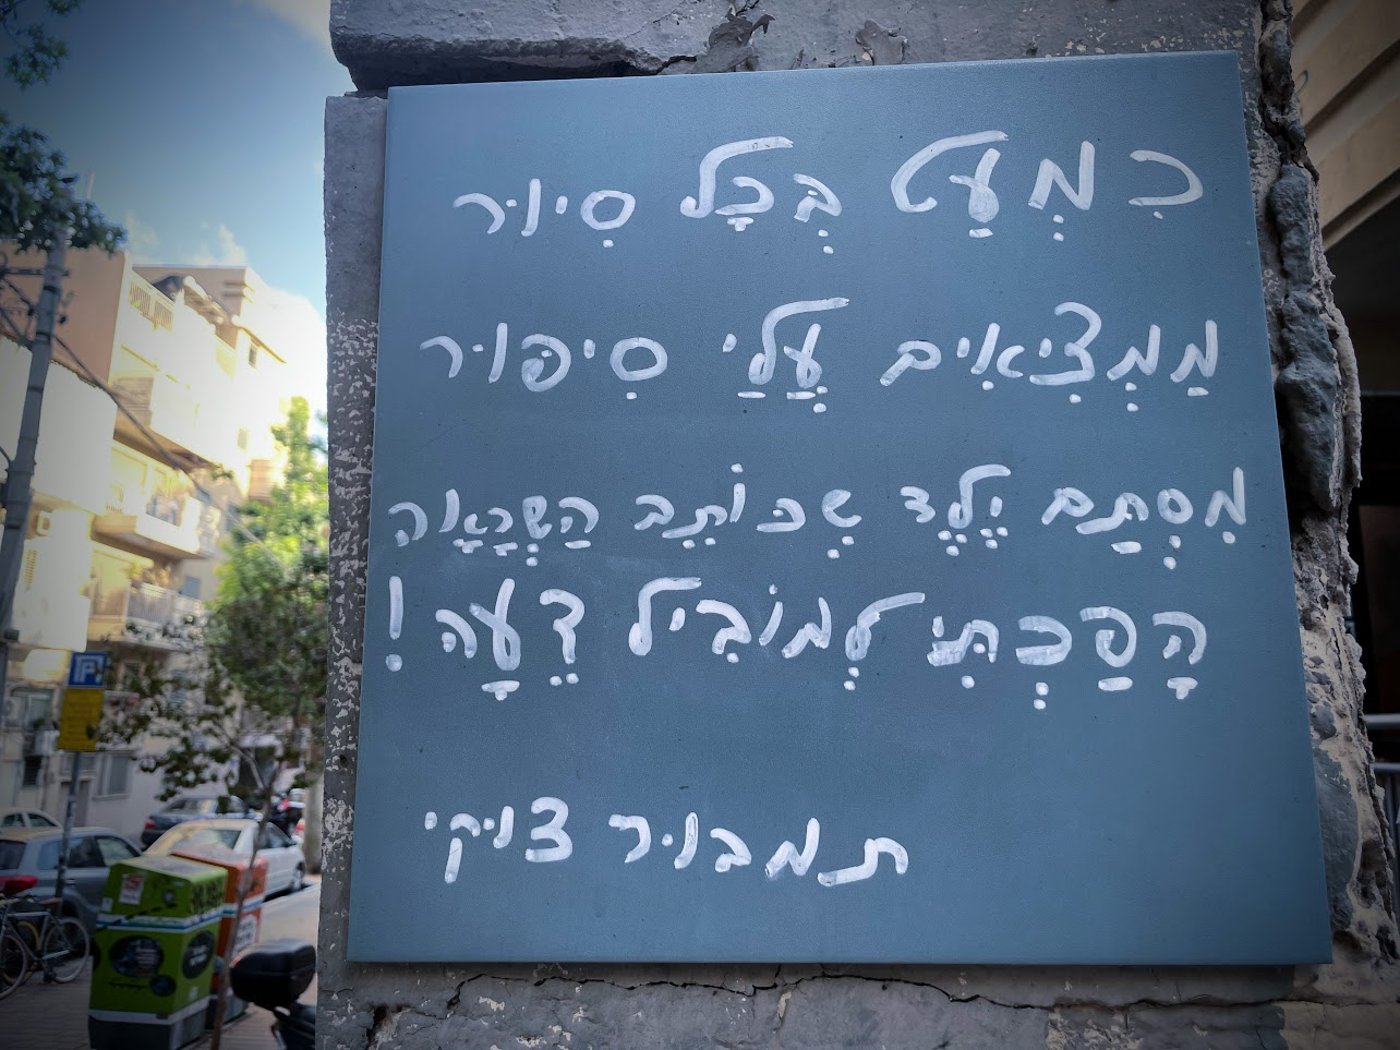 כִּמְעַט בְּכָל סִיּוּר
מַמְצִיאִים עָלַיי סִיפּוּר
מִסְתָּם יֶלֶד שֶׁכּוֹתֵב הַשְׁרָאָה
הָפַכְתִּי לְמוֹבִיל דֵּעָה!
תמבור צוקי
P